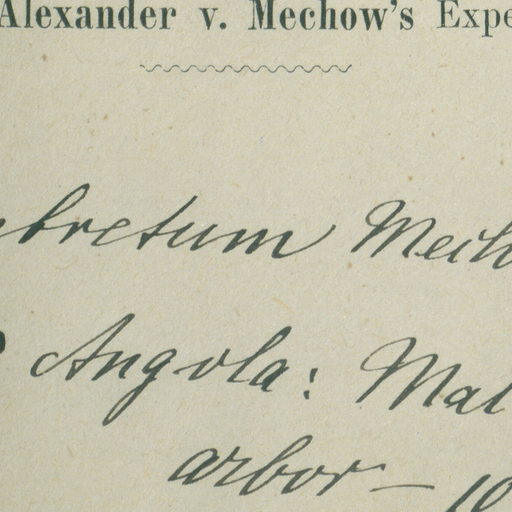 Alexander v. Mechow's Expe
bretum Mech
Angola: Mal
arbor - 10